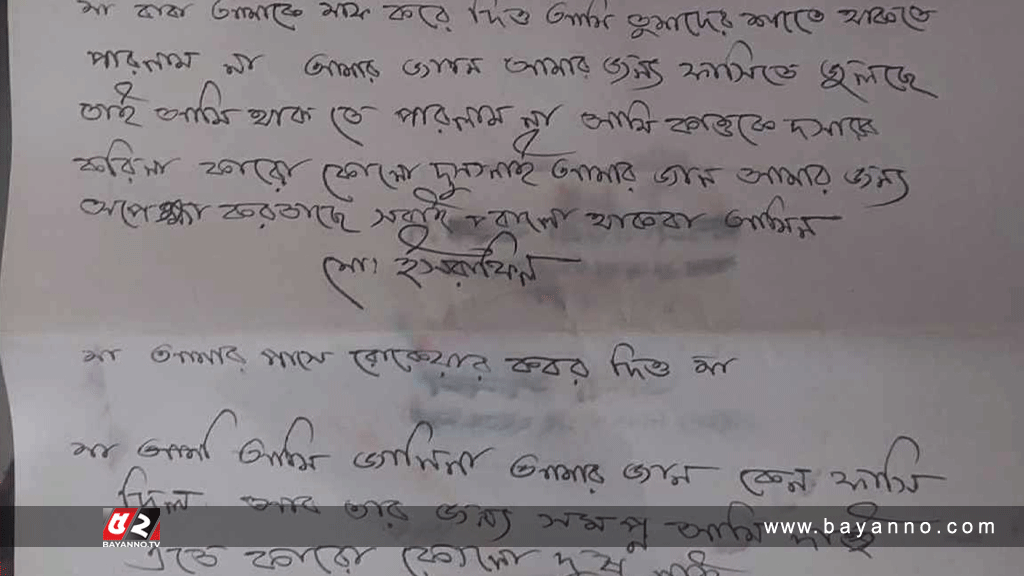 মা বাবা আমাকে মাফ করে দিও আমি তুমাদের সাতে থাকতে
পারলাম না আমার জান আমার জন্য ফাসিতে ঝুলছে
তাই আমি থাক তে পারলাম না আমি কাওকে দসারব
করিনা কারো কোনো দুসনাই আমার জান আমার জন্য
অপেক্ষা করতাছে সবাই বালো থাকবা আমিন
মো। ইসরাফিল
মা আমার পাসে রোকেয়ার কবর দিও মা
মা আমি জানিনা আমার জান কেন ফাসি
দিল আর তার জন্য সমপু আমি দাই
এতে কারো কোনো দুষ নাই
৫২
BAYANNO.TV
www.bayanno.com